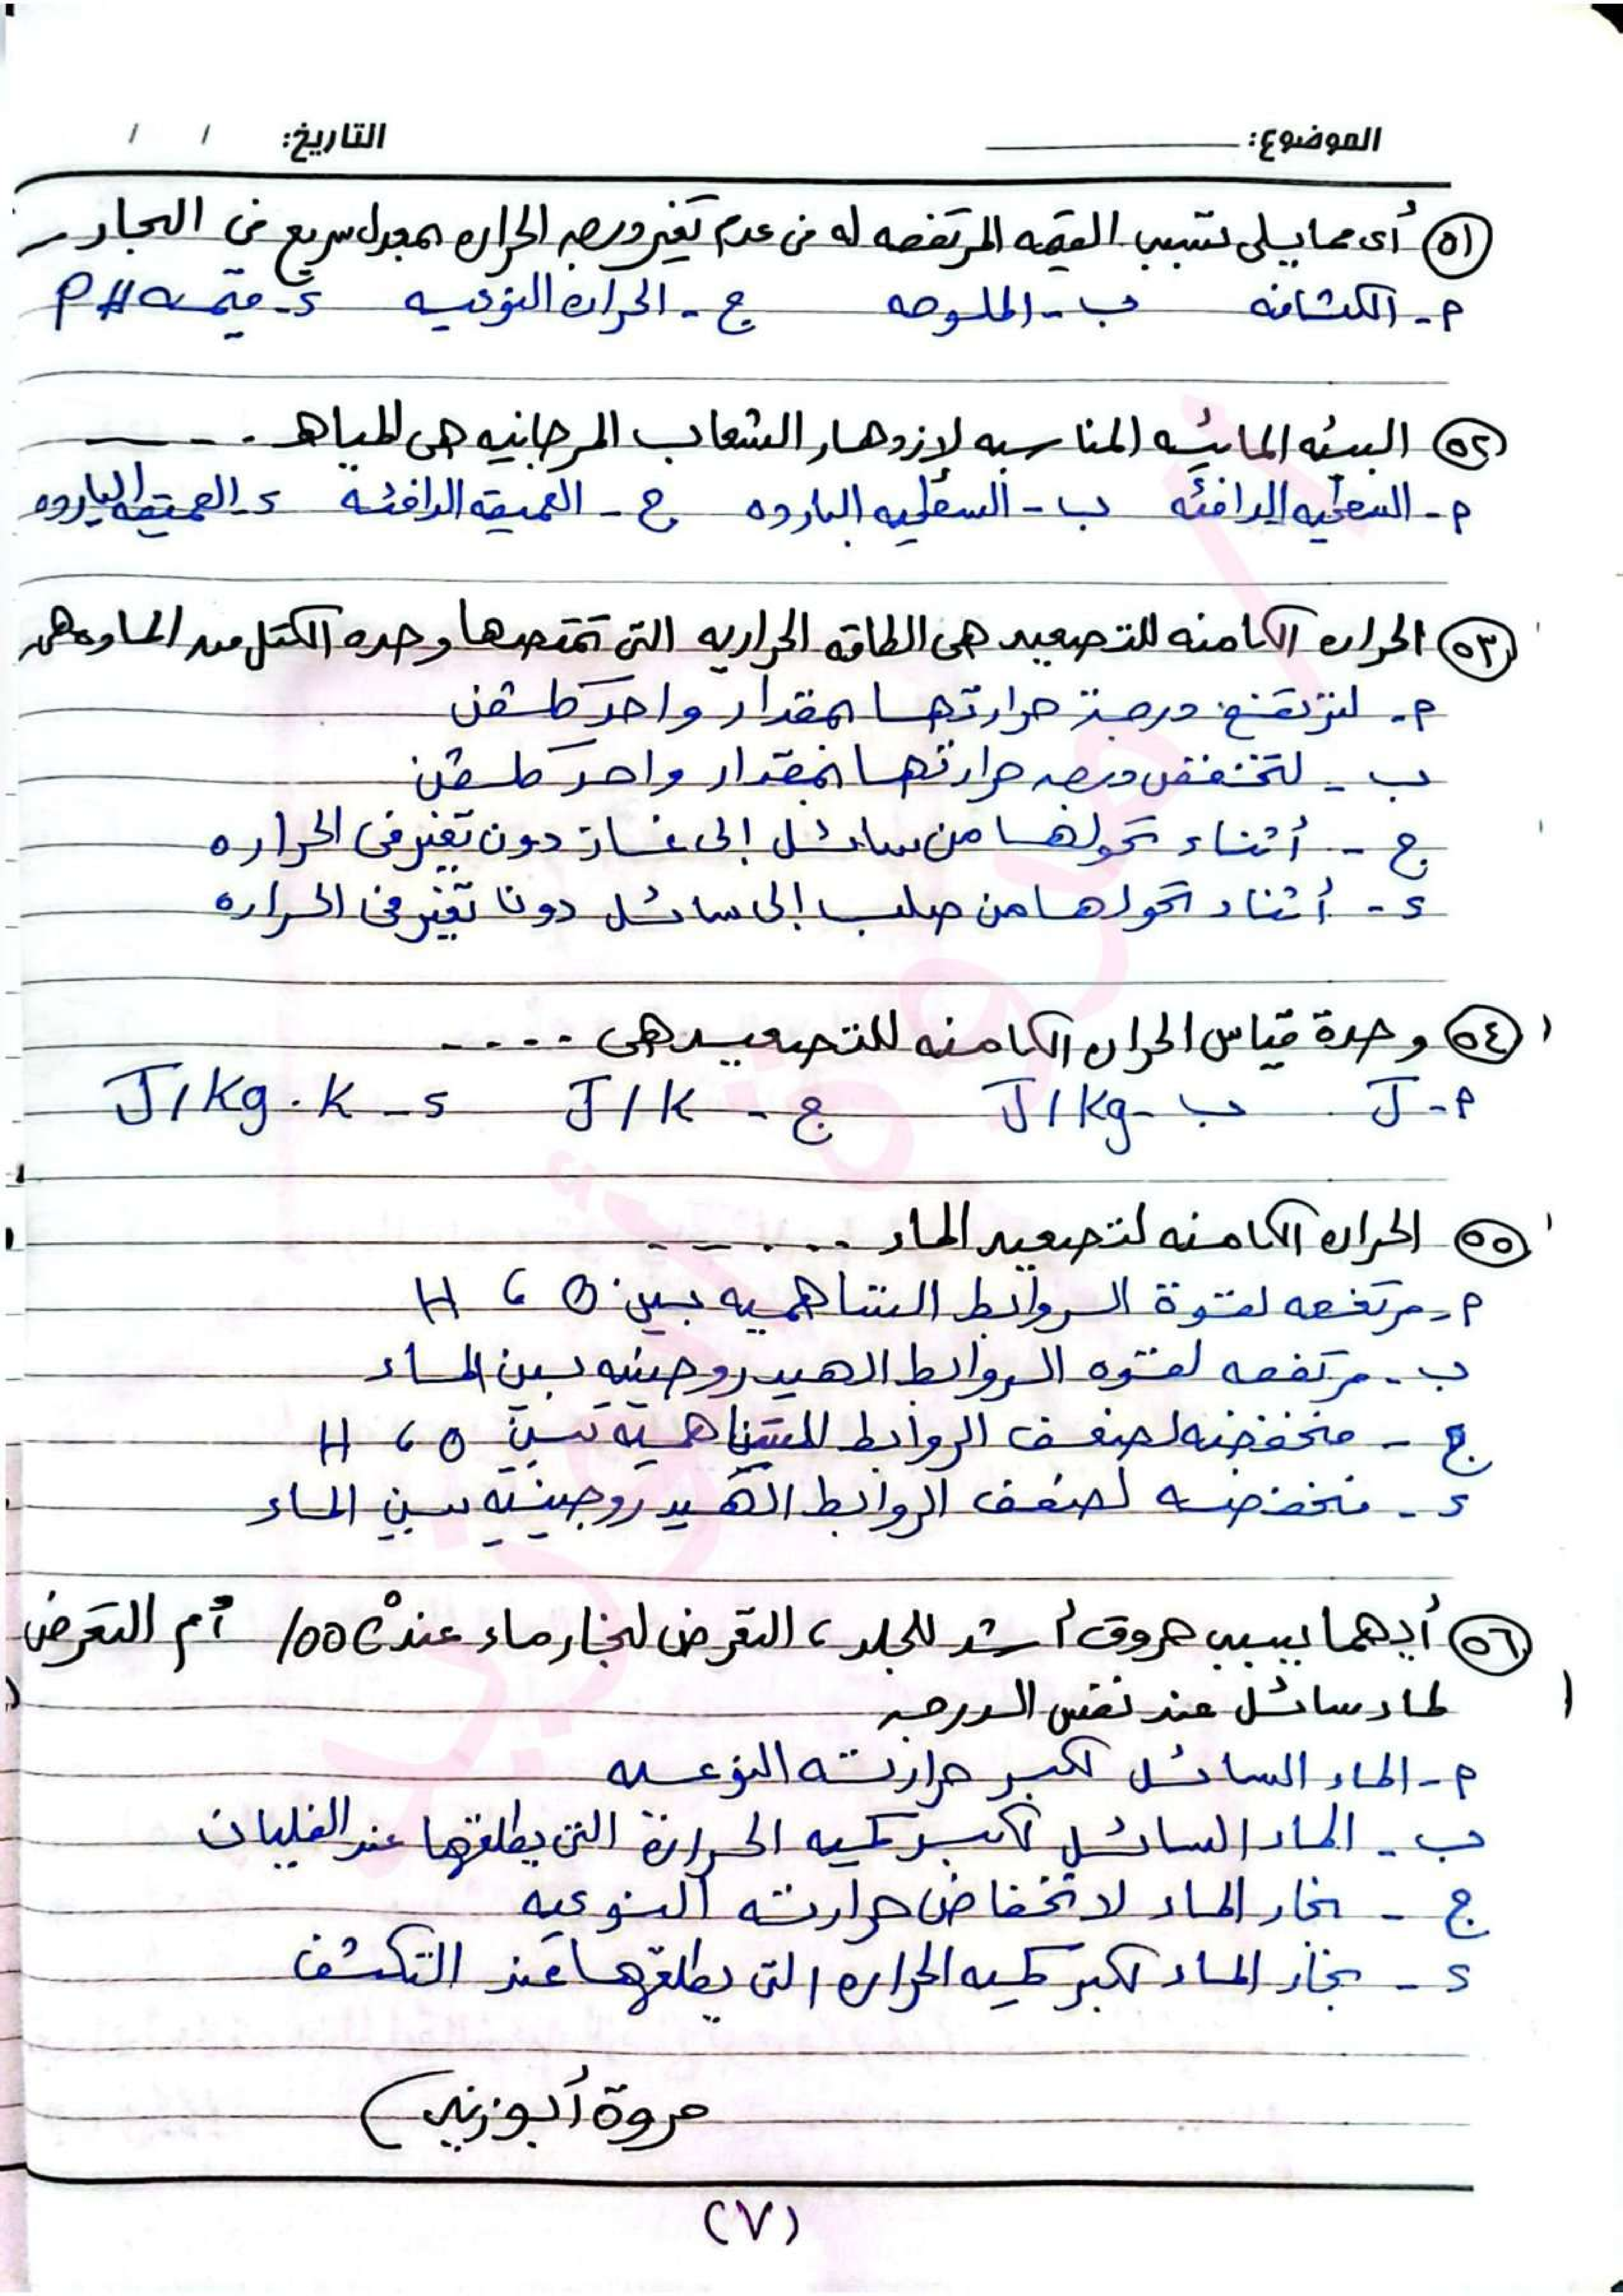 الموضوع: التاريخ: / /
٥١ أى مما يلى تتسبب القيمه المرتفعه له فى عدم تغير درجه الحراره بمعدل سريع فى البحار
أ - الكثافه ب - الملوحه ج - الحراره النوعيه د - قيمه PH
٥٢ البيئه المائيه المناسبه لازدهار الشعاب المرجانيه هى المياه ....
أ - السطحيه الدافئه ب - السطحيه البارده ج - العميقه الدافئه د - العميقه البارده
٥٣ الحراره الكامنه للتصعيد هى الطاقه الحراريه التى تمتصها وحده الكتل من الماده هى
أ - لترتفع درجة حرارتها بمقدار واحد كلفن
ب - لتنخفض درجه حرارتها بمقدار واحد كلفن
ج - أثناء تحولها من سائل إلى غاز دون تغير فى الحراره
د - أثناء تحولها من صلب إلى سائل دون تغير فى الحراره
٥٤ وحدة قياس الحراره الكامنه للتصعيد هى ....
أ - J ب - J/kg ج - J/K د - J/kg.K
٥٥ الحراره الكامنه لتصعيد الماء ......
أ - مرتفعه لقوة الروابط التساهميه بين O ، H
ب - مرتفعه لقوه الروابط الهيدروجينيه بين الماء
ج - منخفضه لضعف الروابط التساهميه بين O ، H
د - منخفضه لضعف الروابط الهيدروجينيه بين الماء
٥٦ أيهما يسبب حروق أشد للجلد ، التعرض لبخار ماء عند 100C° أم التعرض
لماء سائل عند نفس الدرجه
أ - الماء السائل لكبر حرارته النوعيه
ب - الماء السائل لكبر كميه الحرارة التى يطلقها عند الغليان
ج - بخار الماء لانخفاض حرارته النوعيه
د - بخار الماء لكبر كميه الحراره التى يطلقها عند التكثف
مروة أبوزيد
(٧)